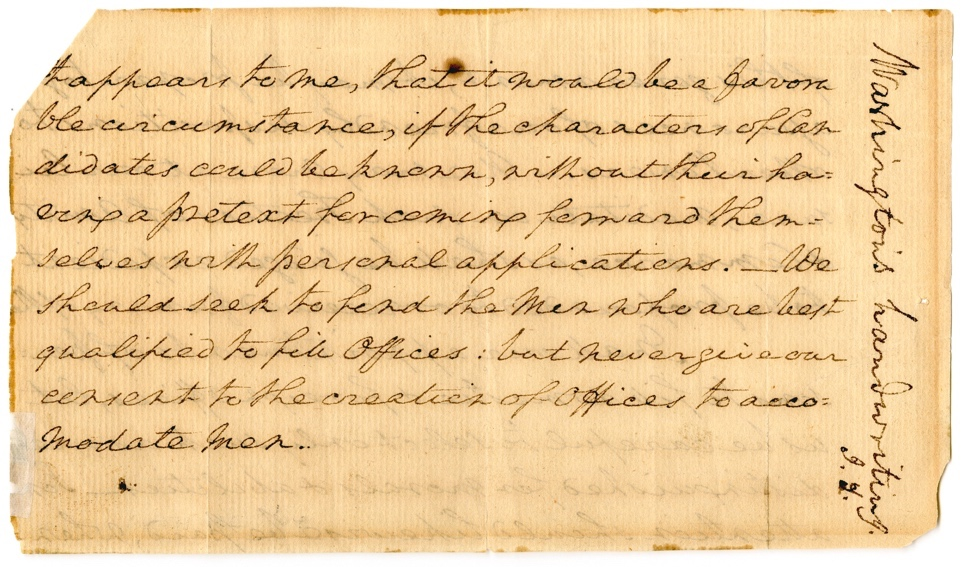 t appears to me, that it would be a favora
ble circumstance, if the characters of Can
didates could be known, without their ha=
ving a pretext for coming forward them=
selves with personal applications. — We
should seek to find the Men who are best
qualified to fill Offices: but never give our
consent to the creation of Offices to acco=
modate Men.
Washington's handwriting.
J. S.